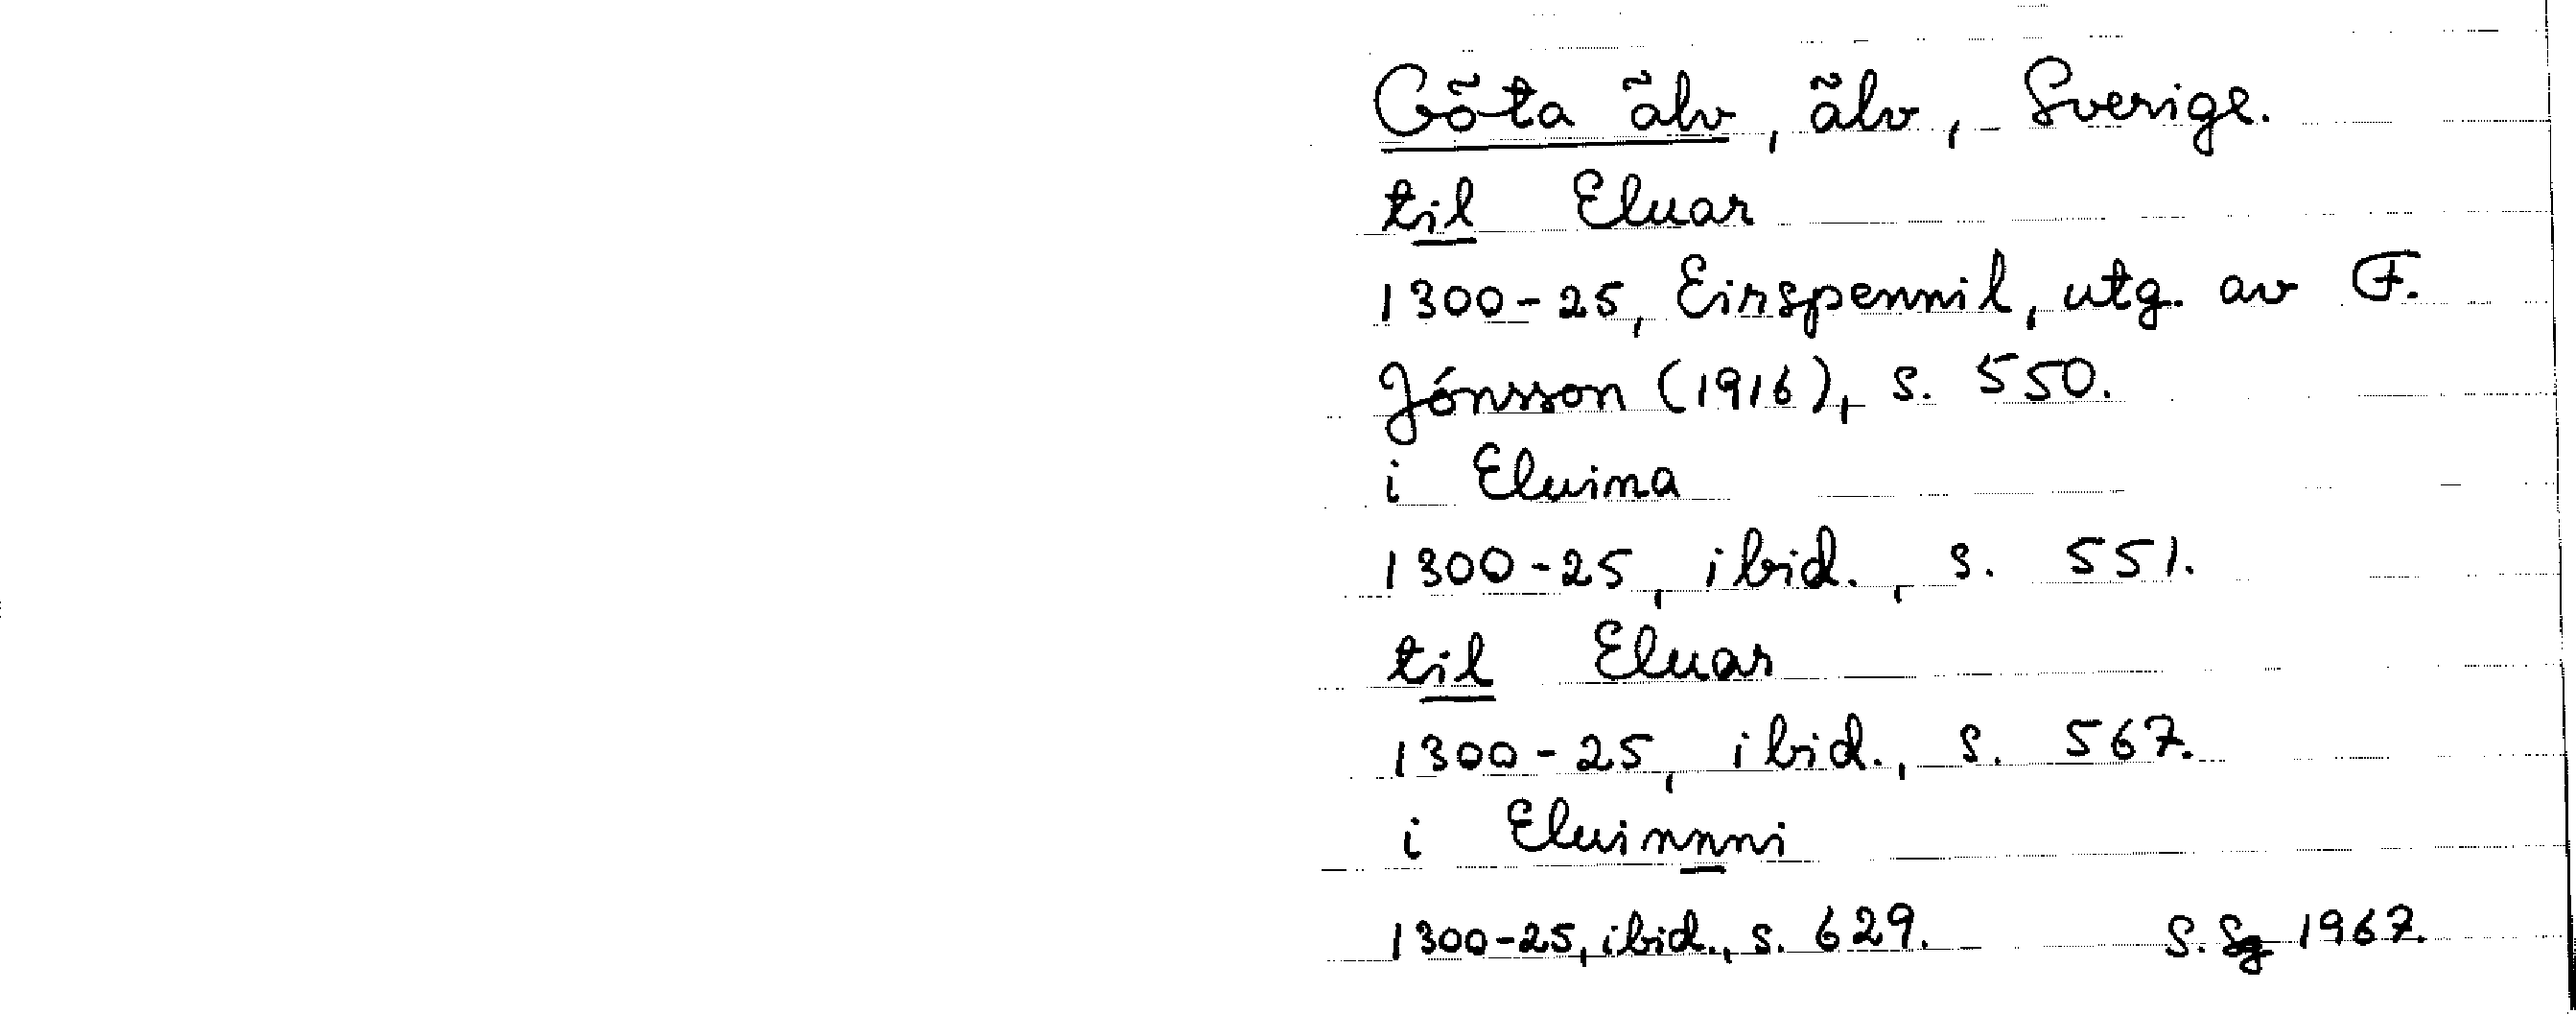 Göta älv, älv, Sverige.
til Eluar
1300-25, Eirspennil, utg. av F.
Jónsson (1916), s. 550.
i Eluina
1300-25, ibid., s. 551.
til Eluar
1300-25, ibid., s. 567.
i Eluinnni
1300-25, ibid., s. 629. S. Sg 1967.